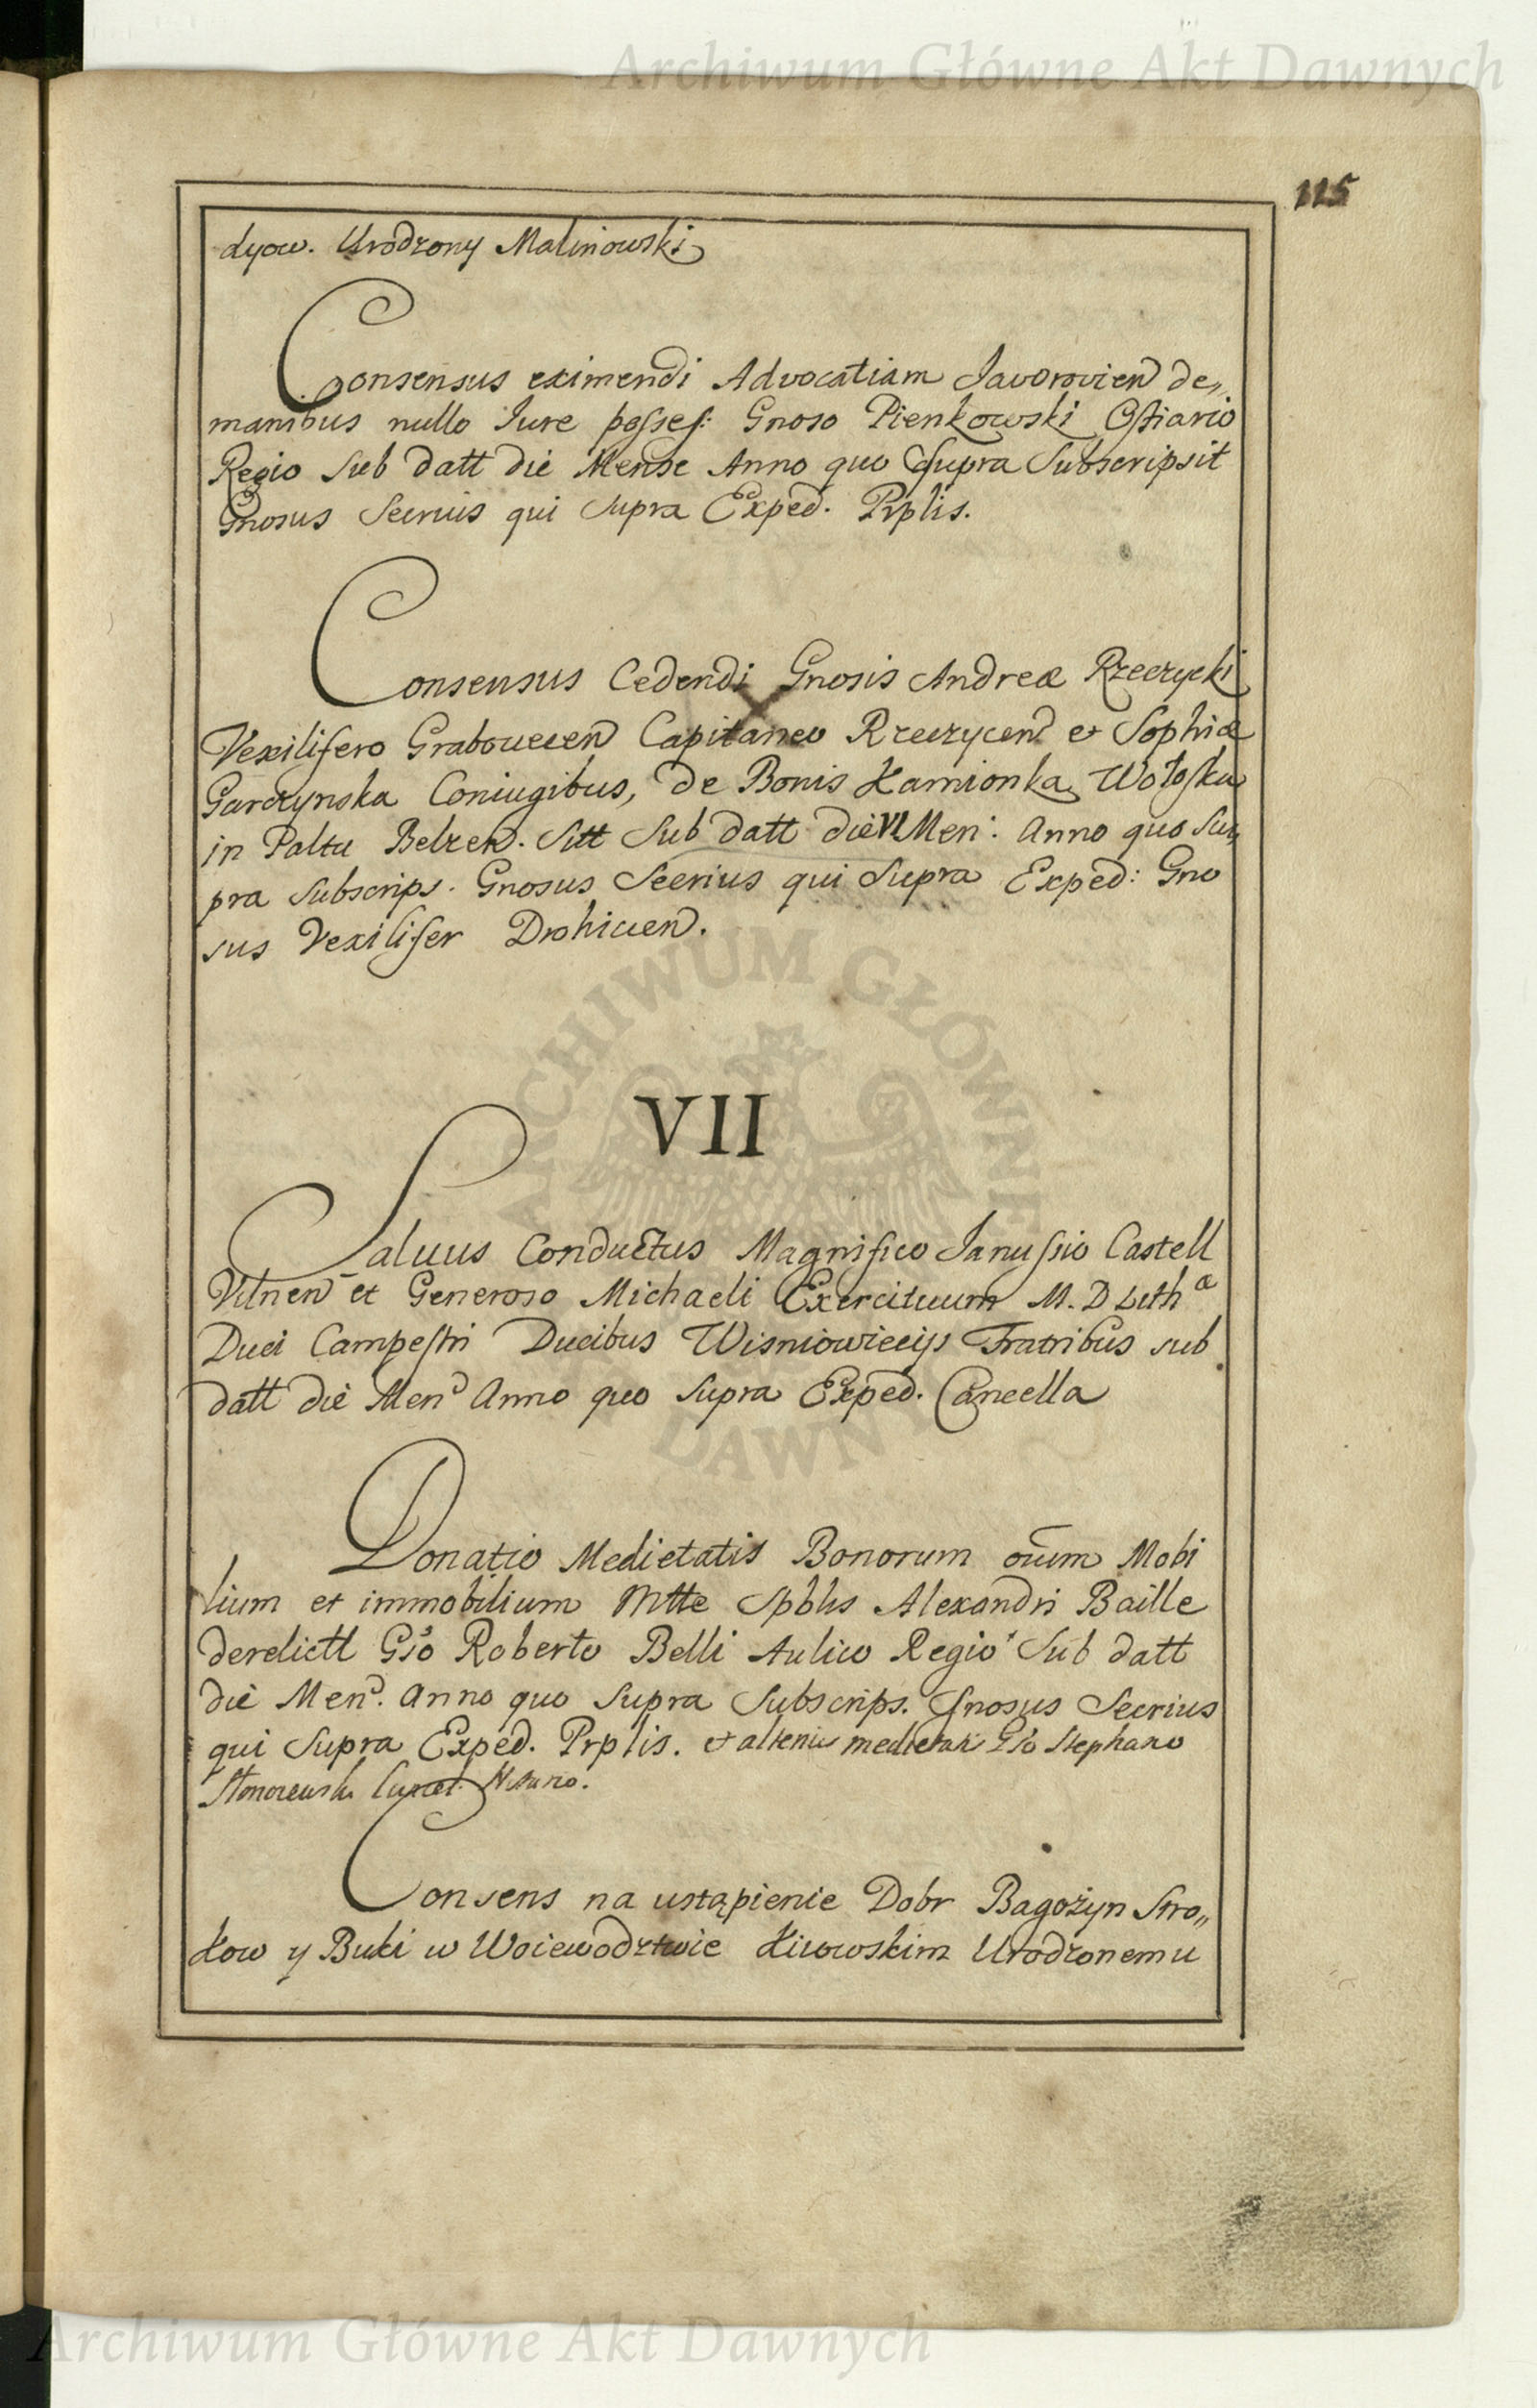 Archiwum Główne Akt Dawnych
115
dyow. Urodzony Malinowski
Consensus eximendi Advocatiam Javorovien de„
manibus nullo Jure posses: Gnoso Pienkowski Ostiario
Regio Sub datt die Mense Anno quo Supra Subscripsit
Gnosus Secrius qui Supra Exped. Prplis.
Consensus Cedendi Gnosis Andreæ Rzeczycki
Vexilifero Grabovecen Capitaneo Rzeczycen et Sophiæ
Garczynska Coniugibus, de Bonis Kamionka Wołoska
in Paltu Belzen. Sitt Sub datt die VI Men: Anno quo Su„
pra Subscrips. Gnosus Secrius qui Supra Exped: Gno
sus Vexilifer Drohicen.
VII
Salvus Conductus Magnifico Janussio Castell
Vilnen et Generoso Michaeli Exercituum M. D Lithæ
Duci Campestri Ducibus Wisniowiecijs Fratribus sub
datt die Men Anno quo Supra Exped. Cancella
Donatio Medietatis Bonorum oium Mobi
lium et immobilium Mtte Spblis Alexandri Baille
derelictt Gso Roberto Belli Aulico Regio Sub datt
die Men. Anno quo Supra Subscrips. Gnosus Secrius
qui Supra Exped. Prplis. et alterius medietatis Gso Stephano
Consens na ustąpienie Dobr Bagożyn Stro„
kow y Buki w Woiewodztwie Kiiowskim Urodzonemu
ARCHIWUM GŁÓWNE
DAWNY
Archiwum Główne Akt Dawnych